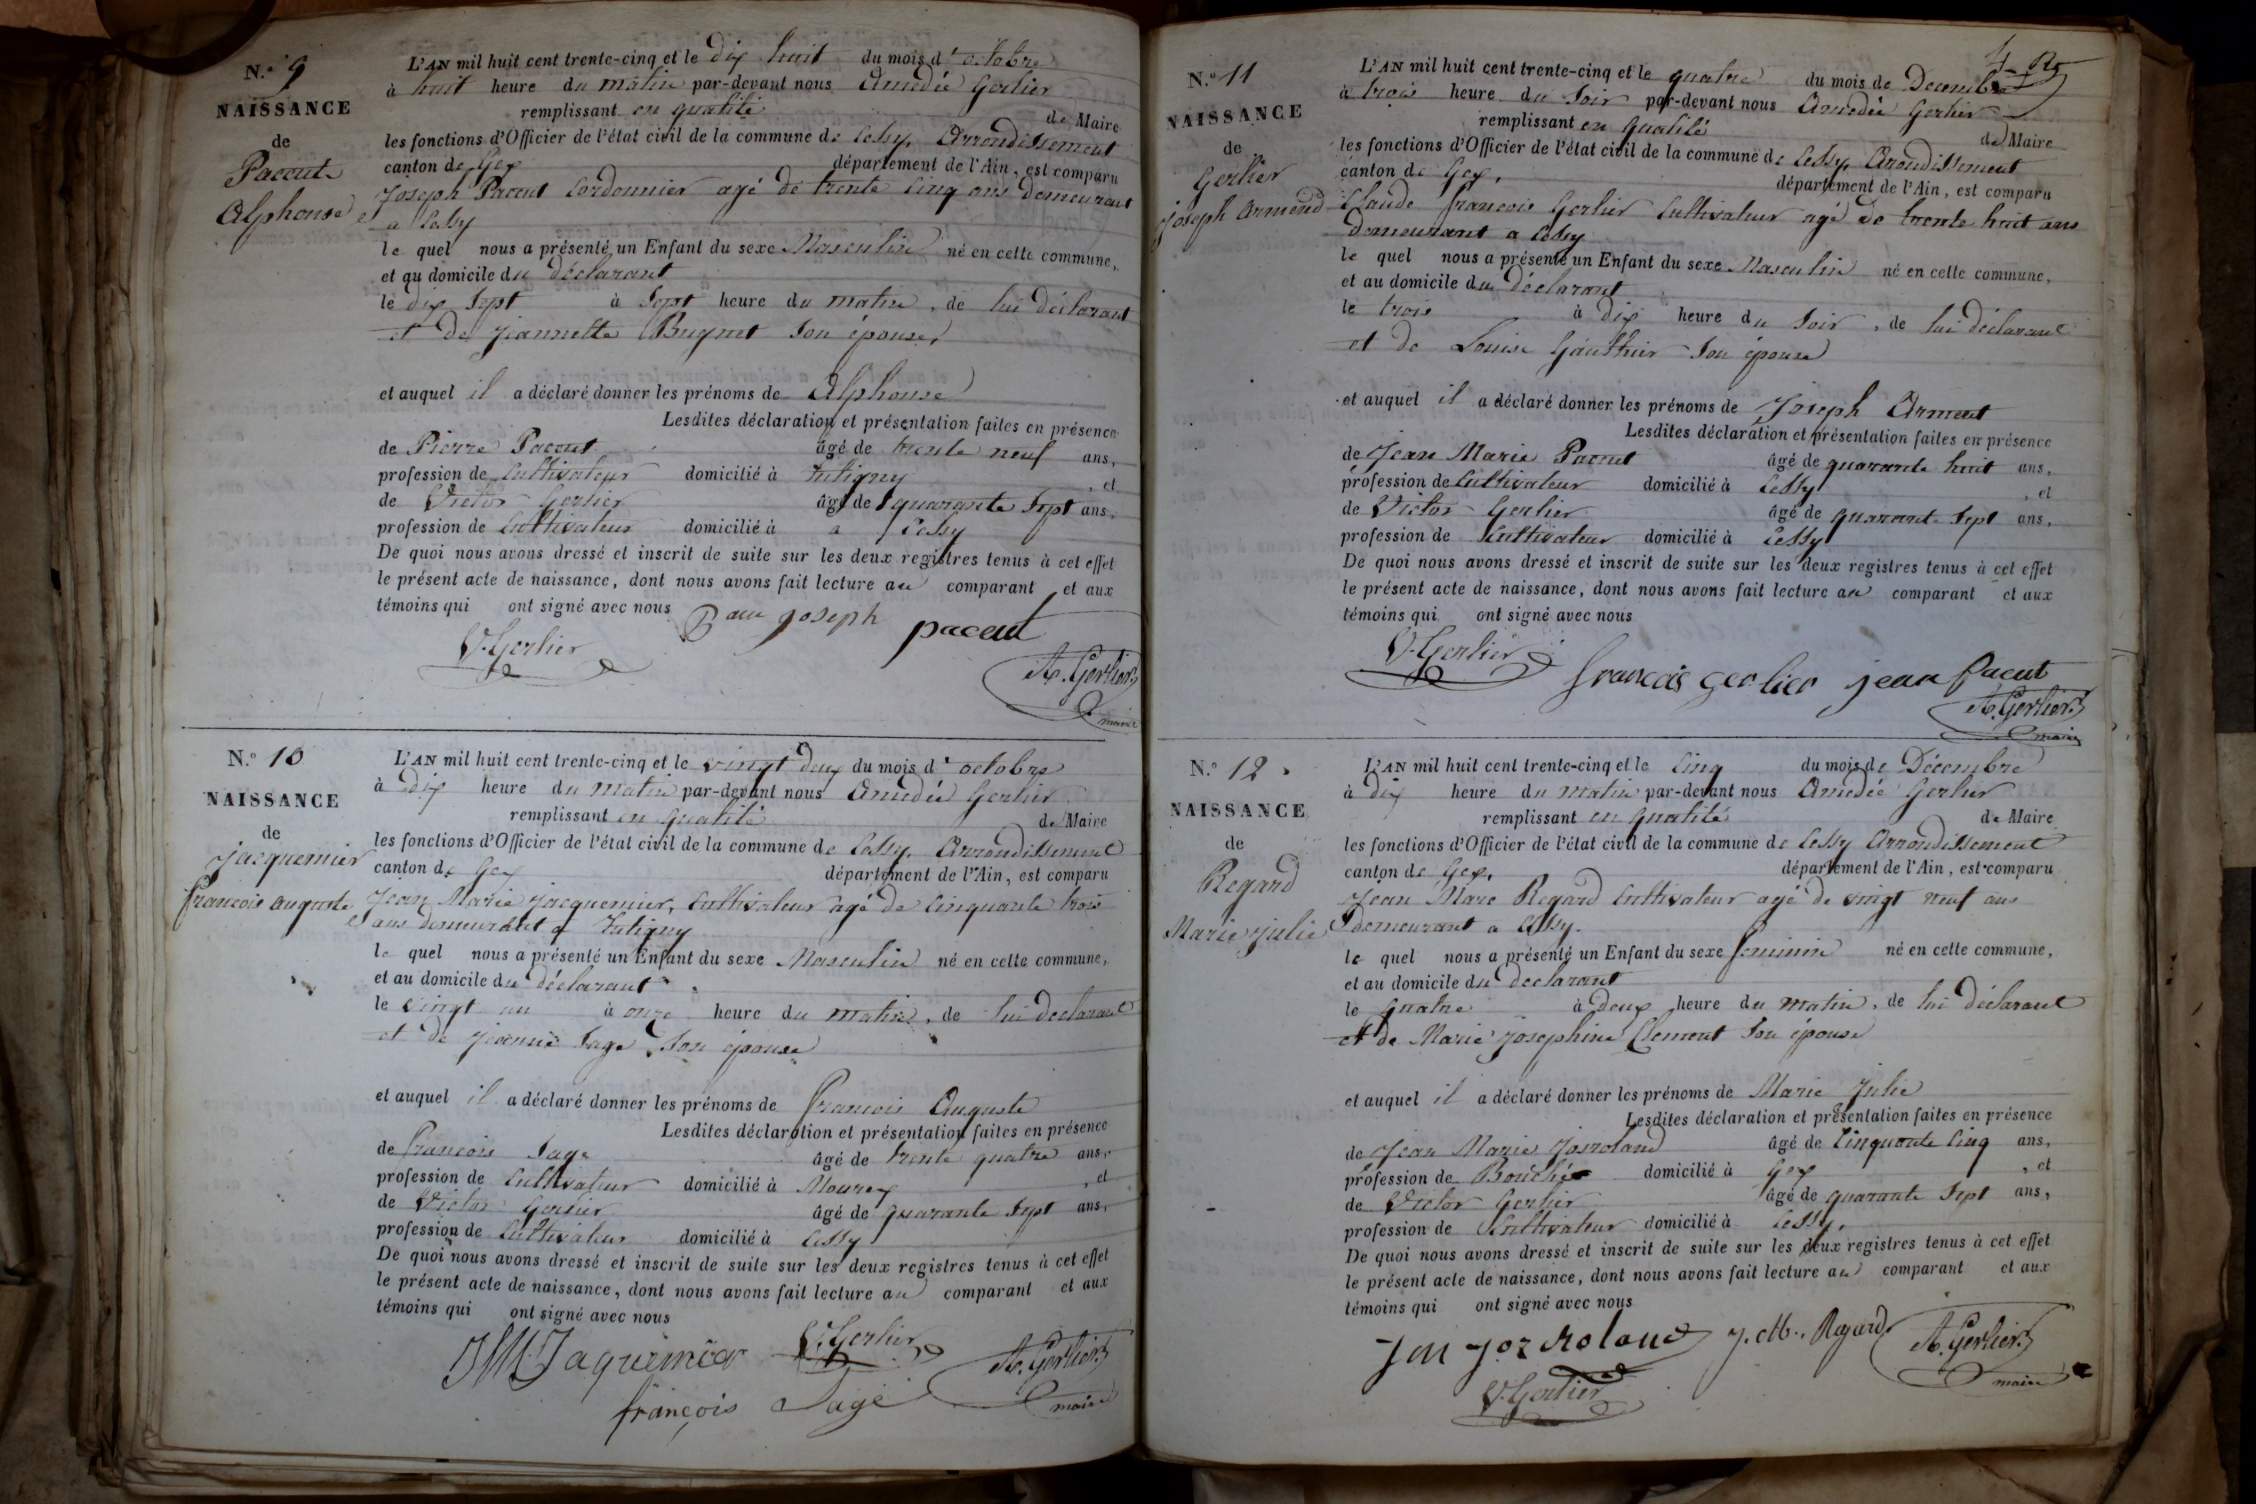 N.o 9
NAISSANCE
de
Pacout
Alphonse
L'AN mil huit cent trente-cinq et le dix huit du mois d'octobre
à huit heure du matin par-devant nous Amedée Gerlier
remplissant en qualité de Maire
les fonctions d'Officier de l'état civil de la commune de Cessy, Arrondissement
canton de Gex département de l'Ain, est comparu
Joseph Pacout Cordonnier agé de trente cinq ans demeurant
a Cessy
le quel nous a présenté un Enfant du sexe Masculin né en cette commune,
et au domicile du déclarant
le dix sept à sept heure du matin, de lui déclarant
et de Jeannette Bugnet son épouse,
et auquel il a déclaré donner les prénoms de Alphonse
Lesdites déclaration et présentation faites en présence
de Pierre Pacout âgé de trente neuf ans,
profession de Cultivateur domicilié à Tutigny, et
de Victor Gerlier âgé de quarante sept ans,
profession de Cultivateur domicilié à a Cessy
De quoi nous avons dressé et inscrit de suite sur les deux registres tenus à cet effet
le présent acte de naissance, dont nous avons fait lecture au comparant et aux
témoins qui ont signé avec nous
joseph pacout
V. Gerlier
A. Gerlier
maire
N.o 10
NAISSANCE
de
Jacquemier
francois auguste
L'AN mil huit cent trente-cinq et le vingt deux du mois d'octobre
à dix heure du matin par-devant nous Amedée Gerlier
remplissant en qualité de Maire
les fonctions d'Officier de l'état civil de la commune de Cessy, Arrondissement
canton de Gex département de l'Ain, est comparu
Jean Marie Jacquemier, Cultivateur agé de cinquante trois
ans demeurant a Tutigny
le quel nous a présenté un Enfant du sexe Masculin né en cette commune,
et au domicile du déclarant
le vingt un à onze heure du matin, de lui declarant
et de Jeannie Sage son épouse
et auquel il a déclaré donner les prénoms de francois Auguste
Lesdites déclaration et présentation faites en présence
de francois Sage âgé de trente quatre ans,
profession de Cultivateur domicilié à Mourex, et
de Victor Gerlier âgé de quarante sept ans,
profession de Cultivateur domicilié à Cessy
De quoi nous avons dressé et inscrit de suite sur les deux registres tenus à cet effet
le présent acte de naissance, dont nous avons fait lecture au comparant et aux
témoins qui ont signé avec nous
JM Jaquemier V. Gerlier
françois Sage A. Gerlier
maire
N.o 11
NAISSANCE
de
Gerlier
Joseph Armend
L'AN mil huit cent trente-cinq et le quatre du mois de Decembre
à trois heure du soir par-devant nous Amedée Gerlier
remplissant en qualité de Maire
les fonctions d'Officier de l'état civil de la commune de Cessy, Arondissement
canton de Gex, département de l'Ain, est comparu
Claude francois Gerlier Cultivateur agé de trente huit ans
demeurant a Cessy
le quel nous a présenté un Enfant du sexe Masculin né en cette commune,
et au domicile du déclarant
le trois à dix heure du soir, de lui déclarant
et de Louise Gauthier son épouse
et auquel il a déclaré donner les prénoms de Joseph Arment
Lesdites déclaration et présentation faites en présence
de Jean Marie Pacout âgé de quarante huit ans,
profession de Cultivateur domicilié à Cessy, et
de Victor Gerlier âgé de quarante sept ans,
profession de Cultivateur domicilié à Cessy
De quoi nous avons dressé et inscrit de suite sur les deux registres tenus à cet effet
le présent acte de naissance, dont nous avons fait lecture au comparant et aux
témoins qui ont signé avec nous
V. Gerlier
francois gerlier jean Pacut
A. Gerlier
maire
N.o 12
NAISSANCE
de
Regard
Marie julie
L'AN mil huit cent trente-cinq et le cinq du mois de Décembre
à dix heure du matin par-devant nous Amedée Gerlier
remplissant en qualité de Maire
les fonctions d'Officier de l'état civil de la commune de Cessy Arrondissement
canton de Gex, département de l'Ain, est comparu
Jean Marc Regard Cultivateur agé de vingt neuf ans
demeurant a Cessy.
le quel nous a présenté un Enfant du sexe feminin né en cette commune,
et au domicile du declarant
le quatre à deux heure du matin, de lui déclarant
et de Marie Josephine Clement son épouse
et auquel il a déclaré donner les prénoms de Marie Julie
Lesdites déclaration et présentation faites en présence
de Jean Marie Josroland âgé de cinquante cinq ans,
profession de Bouché domicilié à Gex, et
de Victor Gerlier âgé de quarante sept ans,
profession de Cultivateur domicilié à Cessy.
De quoi nous avons dressé et inscrit de suite sur les deux registres tenus à cet effet
le présent acte de naissance, dont nous avons fait lecture au comparant et aux
témoins qui ont signé avec nous
JM joz Roland J. M. Regard A. Gerlier
maire
V. Gerlier